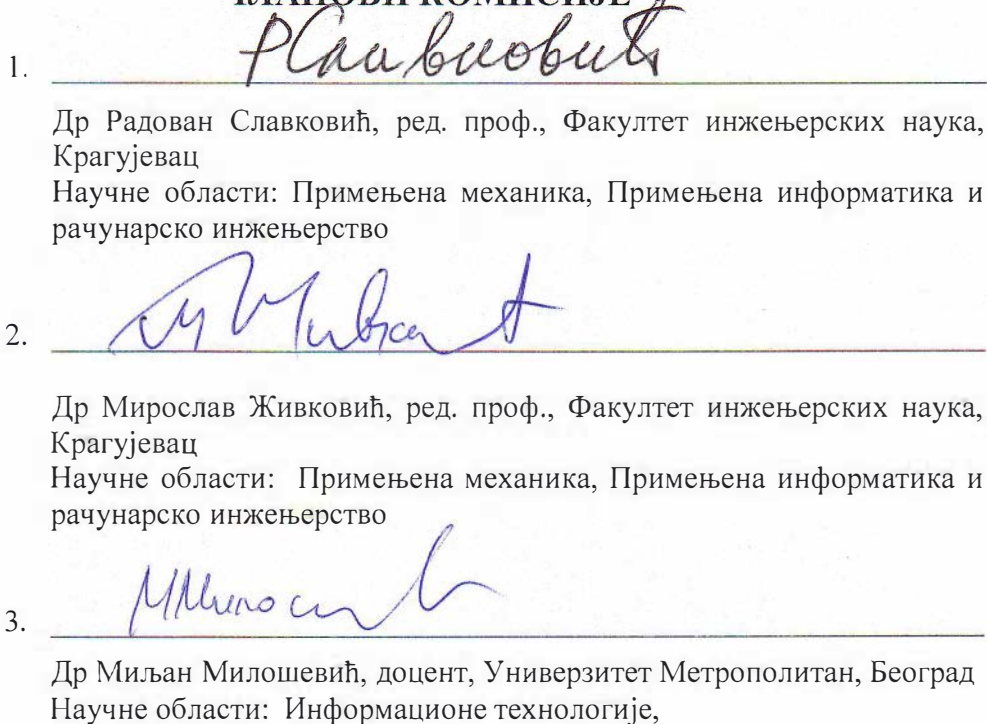 ЧЛАНОВИ КОМИСИЈЕ
1. РСлавковић
Др Радован Славковић, ред. проф., Факултет инжењерских наука,
Крагујевац
Научне области: Примењена механика, Примењена информатика и
рачунарско инжењерство
2.
Др Мирослав Живковић, ред. проф., Факултет инжењерских наука,
Крагујевац
Научне области: Примењена механика, Примењена информатика и
рачунарско инжењерство
3.
Др Миљан Милошевић, доцент, Универзитет Метрополитан, Београд
Научне области: Информационе технологије,